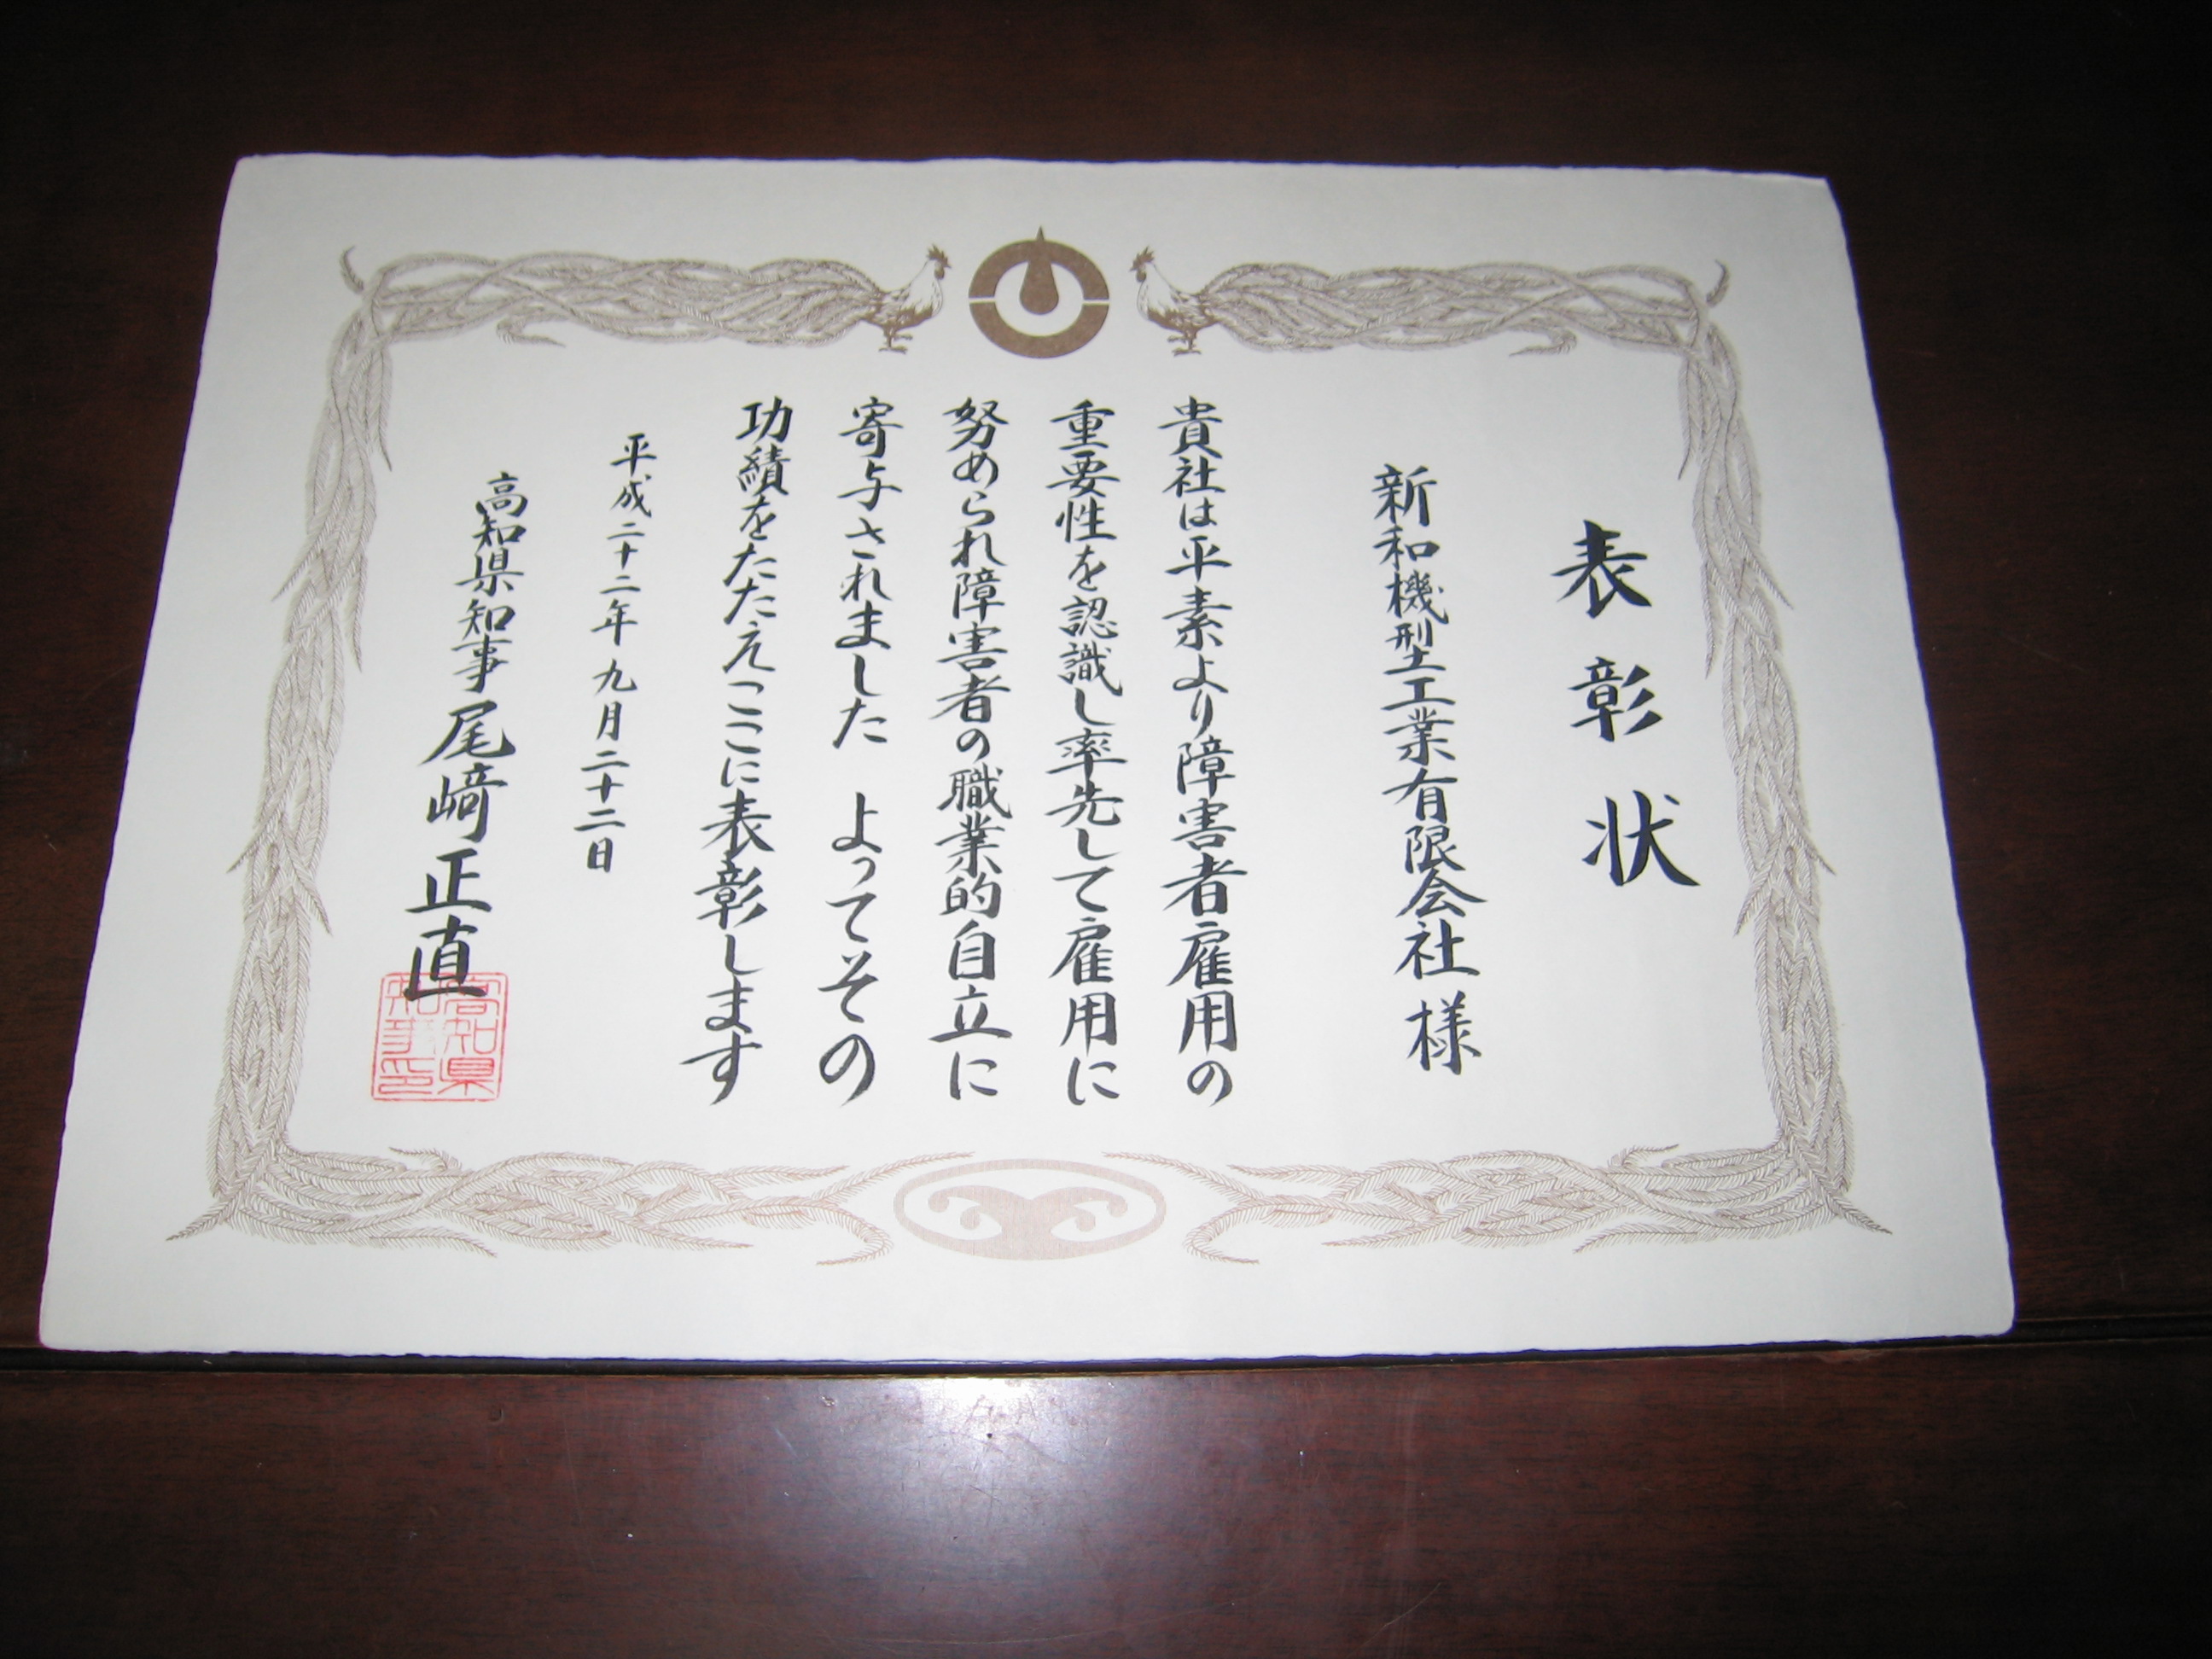 表彰状
新和機型工業有限会社様
貴社は平素より障害者雇用の
重要性を認識し率先して雇用に
努められ障害者の職業的自立に
寄与されました よってその
功績をたたえここに表彰します
平成二十二年九月二十二日
高知県知事尾﨑正直
高知県
知事印